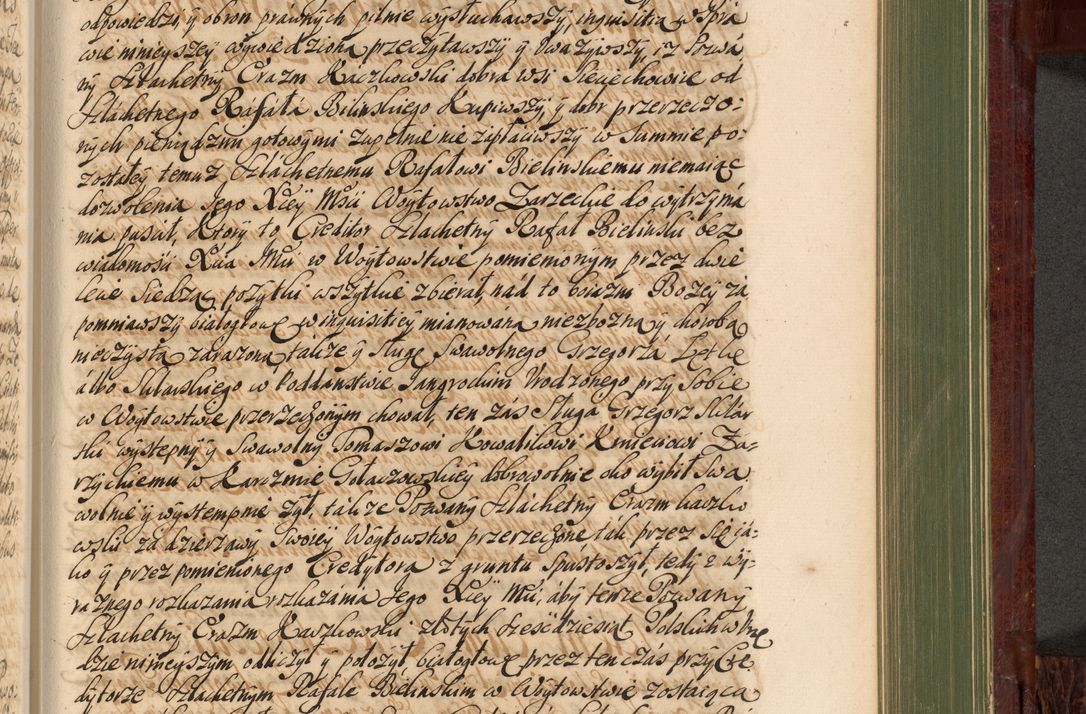 odpowiedzi y obron prawnych pilnie wysłuchawszy, inquisitią w spra
wie ninieyszey wywiedzioną przeczytawszy y uważywszy, iż Pozwa
ny szlachetny Erazm Kaczkowski dobra wsi Sieciechowice od
szlachetnego Rafała Bilinskiego kupiwszy, y dobr przerzeczo-
nych pieniędzmi gotowymi zupełnie nie zapłaciwszy w summie po-
zostałey temuż szlachetnemu Rafałowi Bielinskiemu niemaiąc
dozwolenia Jego Xcey Msci Woytowstwo Zarzeckie do wytrzyma
nia puscił, ktory to Creditor szlachetny Rafał Bielinski bez
wiadomosci Xcia Msci w Woytowstwie pomienionym przez dwie
lecie siedząc, pozytki wszytkie zbierał, nad to boiazni Bozey za
pomniawszy białogłowę w inquisitiey mianowaną niezbozną y chorobą
nieczystą zarazoną, takze y sługę swawolnego Grzegorza
álbo Sklarskiego w Poddanstwie Jangrodum Urodzonego przy sobie
w Woytowstwie przerzeczonym chował, ten zas sługa Grzegorz Sklar
ski występny y swawolny Tomaszowi Kowalikowi Kmieciowi Za-
rzyckiemu w Karczmie Gołaczowskiey dobrowolnie oko wybił swa
wolnie y wystempnie zył, takze Pozwany szlachetny Erazm Kaczko
wski za dzierzawy swoiey Woytowstwo przerzeczone tak przez się ia-
ko y przez pomienionego Credytora z gruntu spustoszył, tedy z wy-
raznego rozkazania rozkazania Jego Xcey Msci, áby tenze Pozwany
szlachetny Erazm Kaczkowski złotych szescdziesiąt Polskich w Urzę
dzie ninieyszym odliczył y położył, białogłowę przez ten czás przy Cre
dytorze szlachetnym Rafale Bielinskim w Woytowstwie zostaiącą